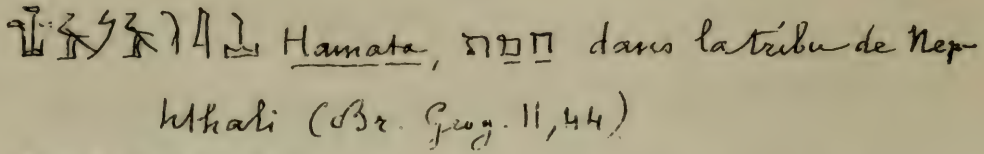 Hamata, חמת dans la tribu de Nep-
hthali (Br. Geog. II, 44)